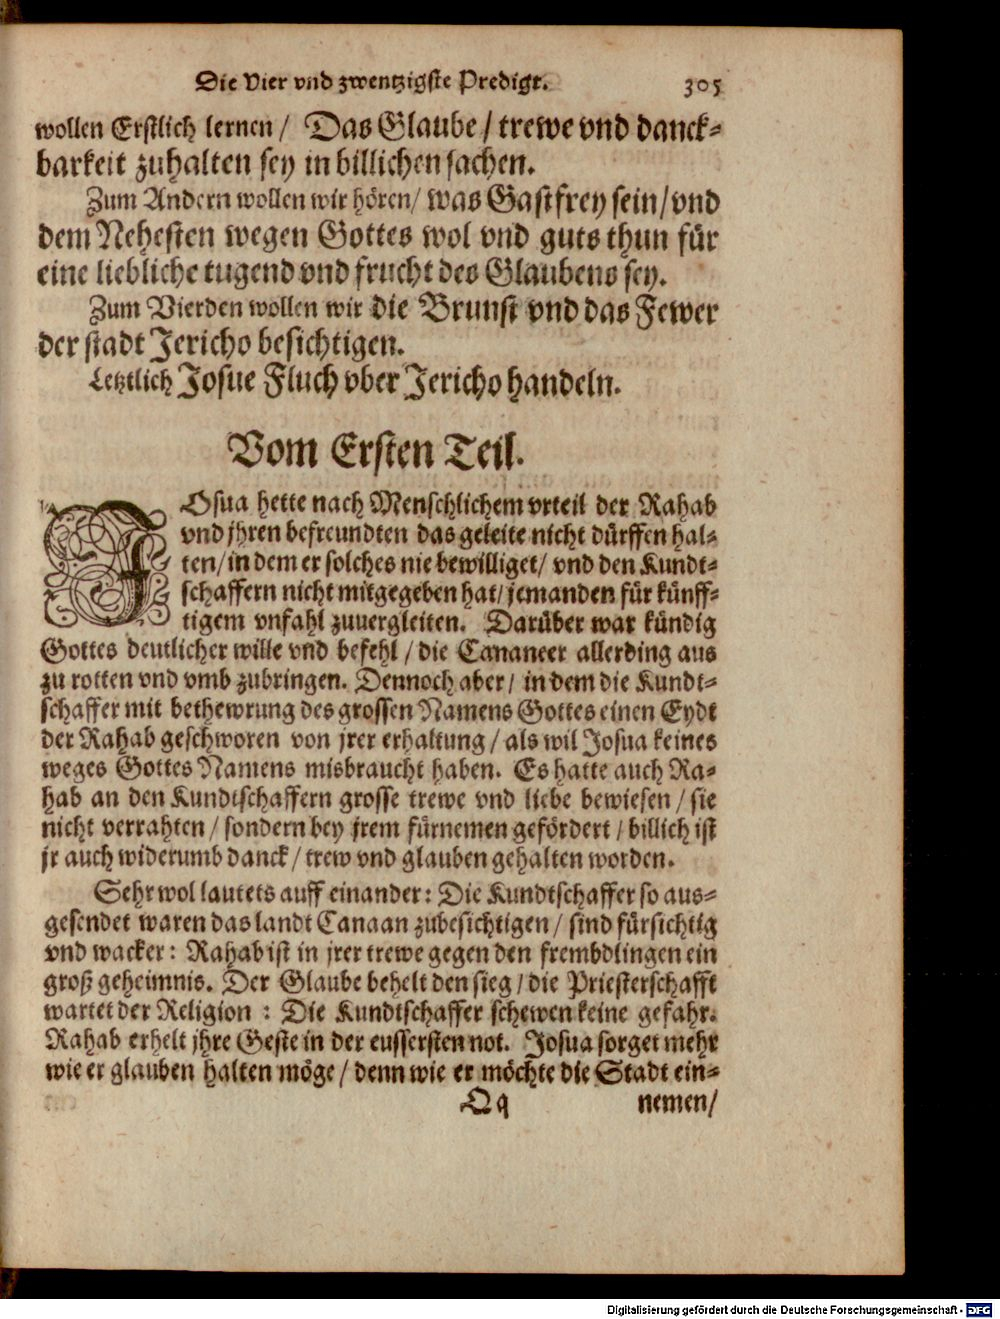 Die Vier vnd zwentzigste Predigt. 305
wollen Erstlich lernen / Das Glaube / trewe vnd danck-
barkeit zuhalten sey in billichen sachen.
Zum Andern wollen wir hören / was Gastfrey sein / vnd
dem Nehesten wegen Gottes wol vnd guts thun für
eine liebliche tugend vnd frucht des Glaubens sey.
Zum Vierden wollen wir die Brunst vnd das Fewer
der stadt Jericho besichtigen.
Letztlich Josue Fluch vber Jericho handeln.
Vom Ersten Teil.
JOsua hette nach Menschlichem vrteil der Rahab
vnd jhren befreundten das geleite nicht dürffen hal-
ten / in dem er solches nie bewilliget / vnd den Kundt-
schaffern nicht mitgegeben hat / jemanden für künff-
tigem vnfahl zuuergleiten. Darüber war kündig
Gottes deutlicher wille vnd befehl / die Cananeer allerding aus
zu rotten vnd vmb zubringen. Dennoch aber / in dem die Kundt-
schaffer mit bethewrung des grossen Namens Gottes einen Eydt
der Rahab geschworen von jrer erhaltung / als wil Josua keines
weges Gottes Namens misbraucht haben. Es hatte auch Ra-
hab an den Kundtschaffern grosse trewe vnd liebe bewiesen / sie
nicht verrahten / sondern bey jrem fürnemen gefördert / billich ist
jr auch widerumb danck / trew vnd glauben gehalten worden.
Sehr wol lautets auff einander: Die Kundtschaffer so aus-
gesendet waren das landt Canaan zubesichtigen / sind fürsichtig
vnd wacker: Rahab ist in jrer trewe gegen den frembdlingen ein
groß geheimnis. Der Glaube behelt den sieg / die Priesterschafft
wartet der Religion : Die Kundtschaffer schewen keine gefahr.
Rahab erhelt jhre Geste in der eussersten not. Josua sorget mehr
wie er glauben halten möge / denn wie er möchte die Stadt ein-
Qq nemen /
Digitalisierung gefördert durch die Deutsche Forschungsgemeinschaft - DFG